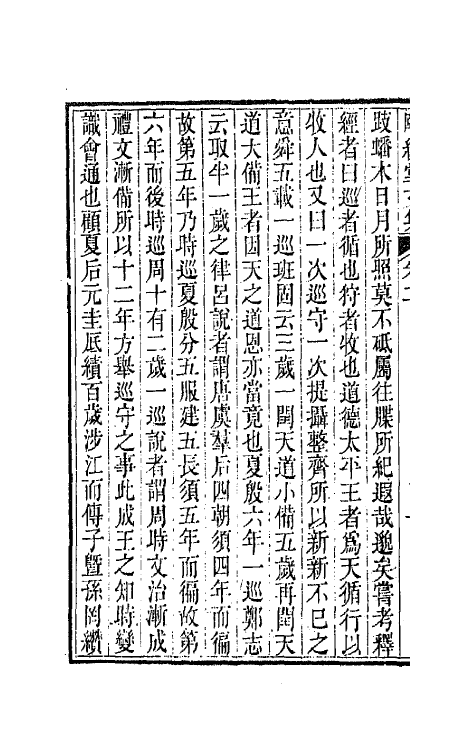 跂蟠木日月所照莫不砥屬往牒所紀遐哉邈矣嘗考釋
經者曰巡者循也狩者牧也道德太平王者爲天循行以
牧人也又曰一次巡守一次提攝整齊所以新新不已之
意舜五載一巡班固云三歲一閏天道小備五歲再閏天
道大備王者因天之道恩亦當竟也夏殷六年一巡鄭志
云取半一歲之律呂說者謂唐虞羣后四朝須四年而徧
故第五年乃時巡夏殷分五服建五長須五年而徧故第
六年而後時巡周十有二歲一巡說者謂周時文治漸成
禮文漸備所以十二年方舉巡守之事此成王之知時變
識會通也顧夏后元圭厎績百歲涉江而傳子曁孫罔纘